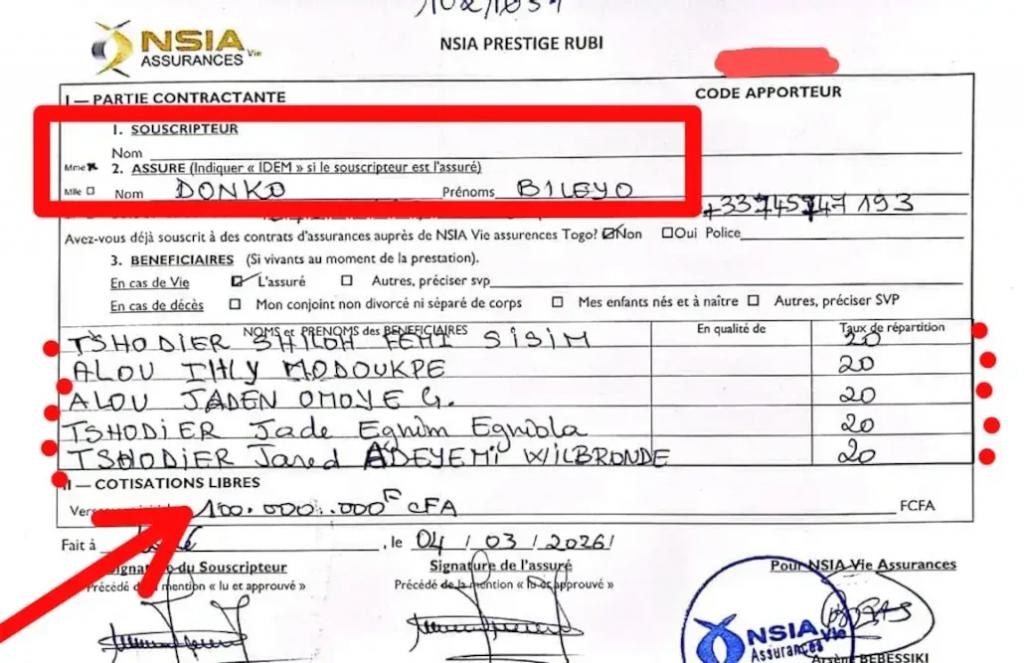 NSIA
Vie
ASSURANCES
NSIA PRESTIGE RUBI
I — PARTIE CONTRACTANTE
CODE APPORTEUR
1. SOUSCRIPTEUR
Nom
Mme 2. ASSURE (Indiquer « IDEM » si le souscripteur est l'assuré)
Mlle Nom DONKO Prénoms BILEYO
+33745747193
Avez-vous déjà souscrit à des contrats d'assurances auprès de NSIA Vie assurences Togo? Non Oui Police
3. BENEFICIAIRES (Si vivants au moment de la prestation).
En cas de Vie L'assuré Autres, préciser svp
En cas de décès Mon conjoint non divorcé ni séparé de corps Mes enfants nés et à naître Autres, préciser SVP
NOMS et PRENOMS des BENEFICIAIRES En qualité de Taux de répartition
TSHODIER SHILOH FEMI SISIM 20
ALOU IHLY MODOUKPE 20
ALOU JADEN OMOYE G. 20
TSHODIER Jade Egnim Egniola 20
TSHODIER Jared ADEYEMI WILBRONDE 20
II — COTISATIONS LIBRES
100.000.000F CFA FCFA
Fait à , le 04/03/2026/
Signature du Souscripteur Signature de l'assuré Pour NSIA Vie Assurances
Précédé de la mention « lu et approuvé » Précédé de la mention « lu et approuvé »
NSIA Vie
Assurances
Arsène BEBESSIKI